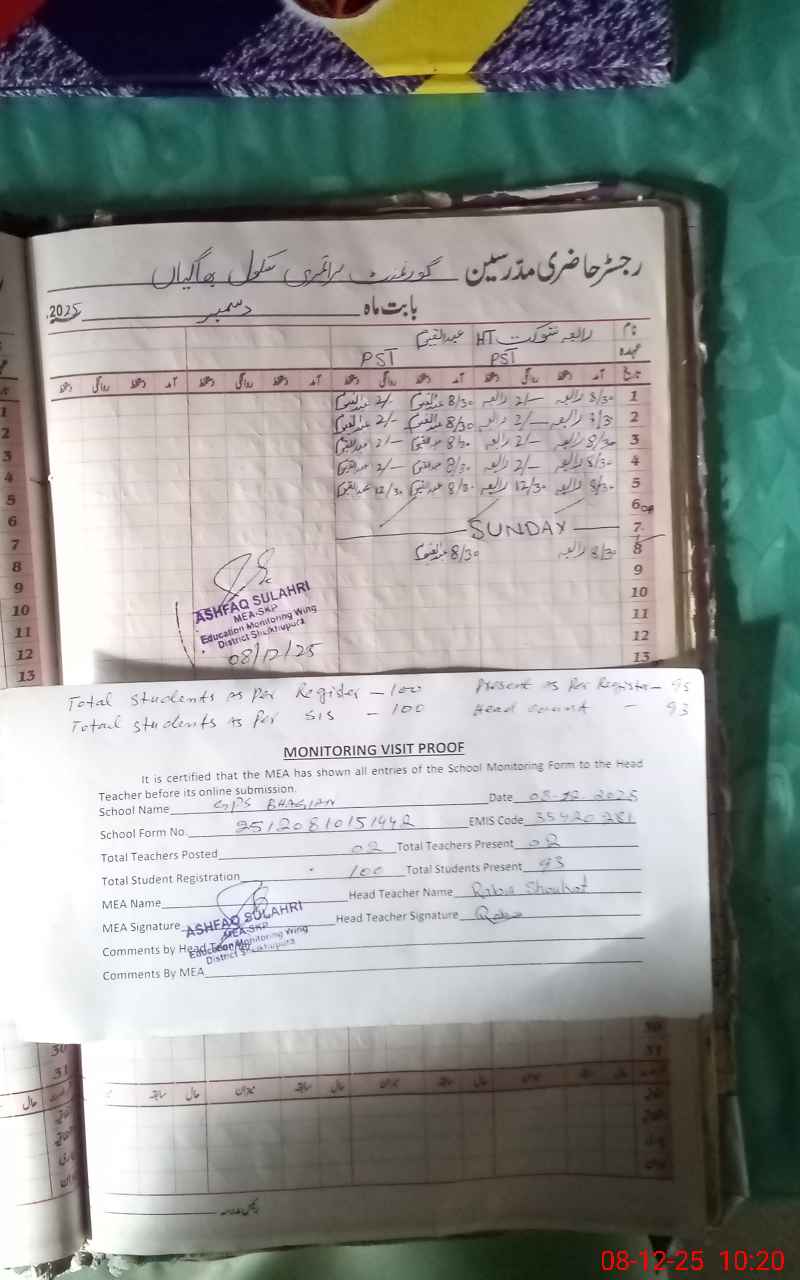 رجسٹر حاضری مدرسین گورنمنٹ پرائمری سکول بھاگیاں
بابت ماہ دسمبر 2025ء
نام رابعہ شوکت HT عبدالقیوم
عہدہ PST PST
تاریخ آمد دستخط روانگی دستخط آمد دستخط روانگی دستخط آمد دستخط روانگی دستخط آمد دستخط روانگی دستخط
1 8/30 رابعہ 2/- رابعہ 8/30 عبدالقیوم 2/- عبدالقیوم
2 رابعہ 2/- رابعہ 8/30 عبدالقیوم 2/- عبدالقیوم
3 8/30 رابعہ 2/- رابعہ 8/30 عبدالقیوم 2/- عبدالقیوم
4 8/30 رابعہ 2/- رابعہ 8/30 عبدالقیوم 2/- عبدالقیوم
5 8/30 رابعہ 12/30 رابعہ 8/30 عبدالقیوم 12/30 عبدالقیوم
6
7 SUNDAY
8 8/30 رابعہ 8/30 عبدالقیوم
9
10
11
12
13
ASHFAQ SULAHRI
MEA-SKP
Education Monitoring Wing
District Sheikhupura
08/12/25
1
2
3
4
5
6
7
8
9
10
11
12
13
Total Students as Per Register - 100 Present as Per Register - 95
Total students as Per SIS - 100 Head count - 93
MONITORING VISIT PROOF
It is certified that the MEA has shown all entries of the School Monitoring Form to the Head
Teacher before its online submission.
School Name GPS BHAGIAN Date 08-12-2025
School Form No. 25120810151442 EMIS Code 35420281
Total Teachers Posted 02 Total Teachers Present 02
Total Student Registration 100 Total Students Present 93
MEA Name Head Teacher Name Rabia Shoukat
MEA Signature Head Teacher Signature Rabia
ASHFAQ SULAHRI
MEA-SKP
Education Monitoring Wing
District Sheikhupura
Comments by Head Teacher
Comments By MEA
30
31
30
31
حال سابقہ میزان حال سابقہ میزان حال سابقہ میزان حال سابقہ
08-12-25 10:20